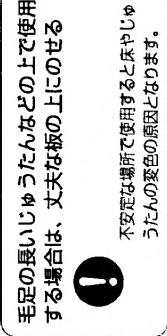 毛足の長いじゅうたんなどの上で使用
する場合は、丈夫な板の上にのせる
不安定な場所で使用すると床やじゅ
うたんの変色の原因となります。